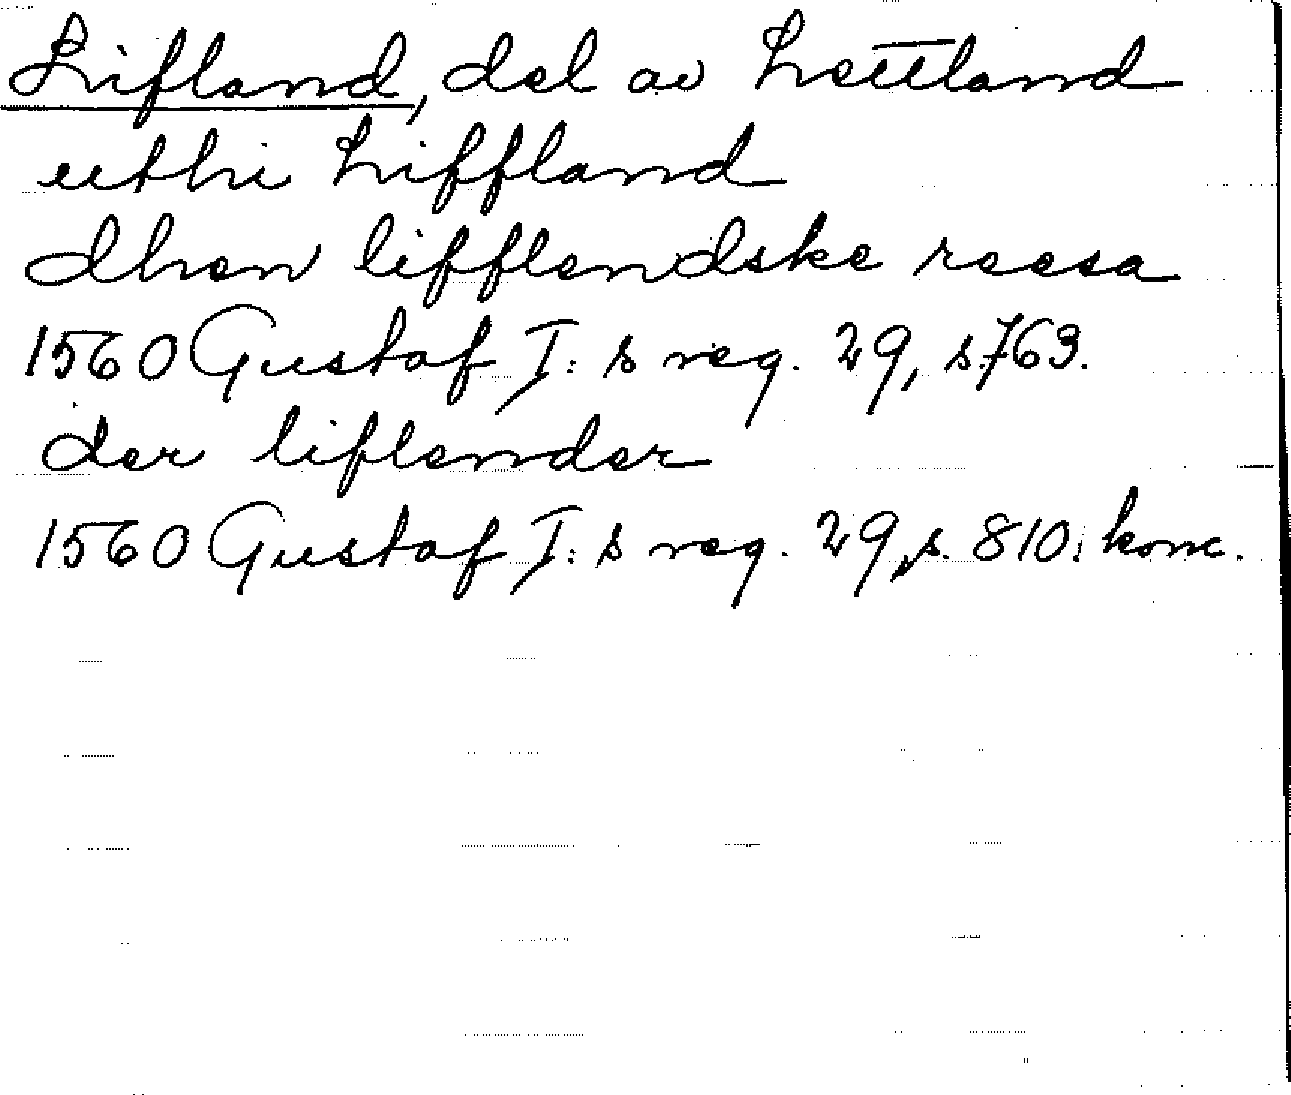 Lifland, del av Lettland
uthi Liffland
dhen lifflendske reesa
1560 Gustaf I:s reg. 29, s.763.
der liflender
1560 Gustaf I:s reg. 29, s. 810. konc.